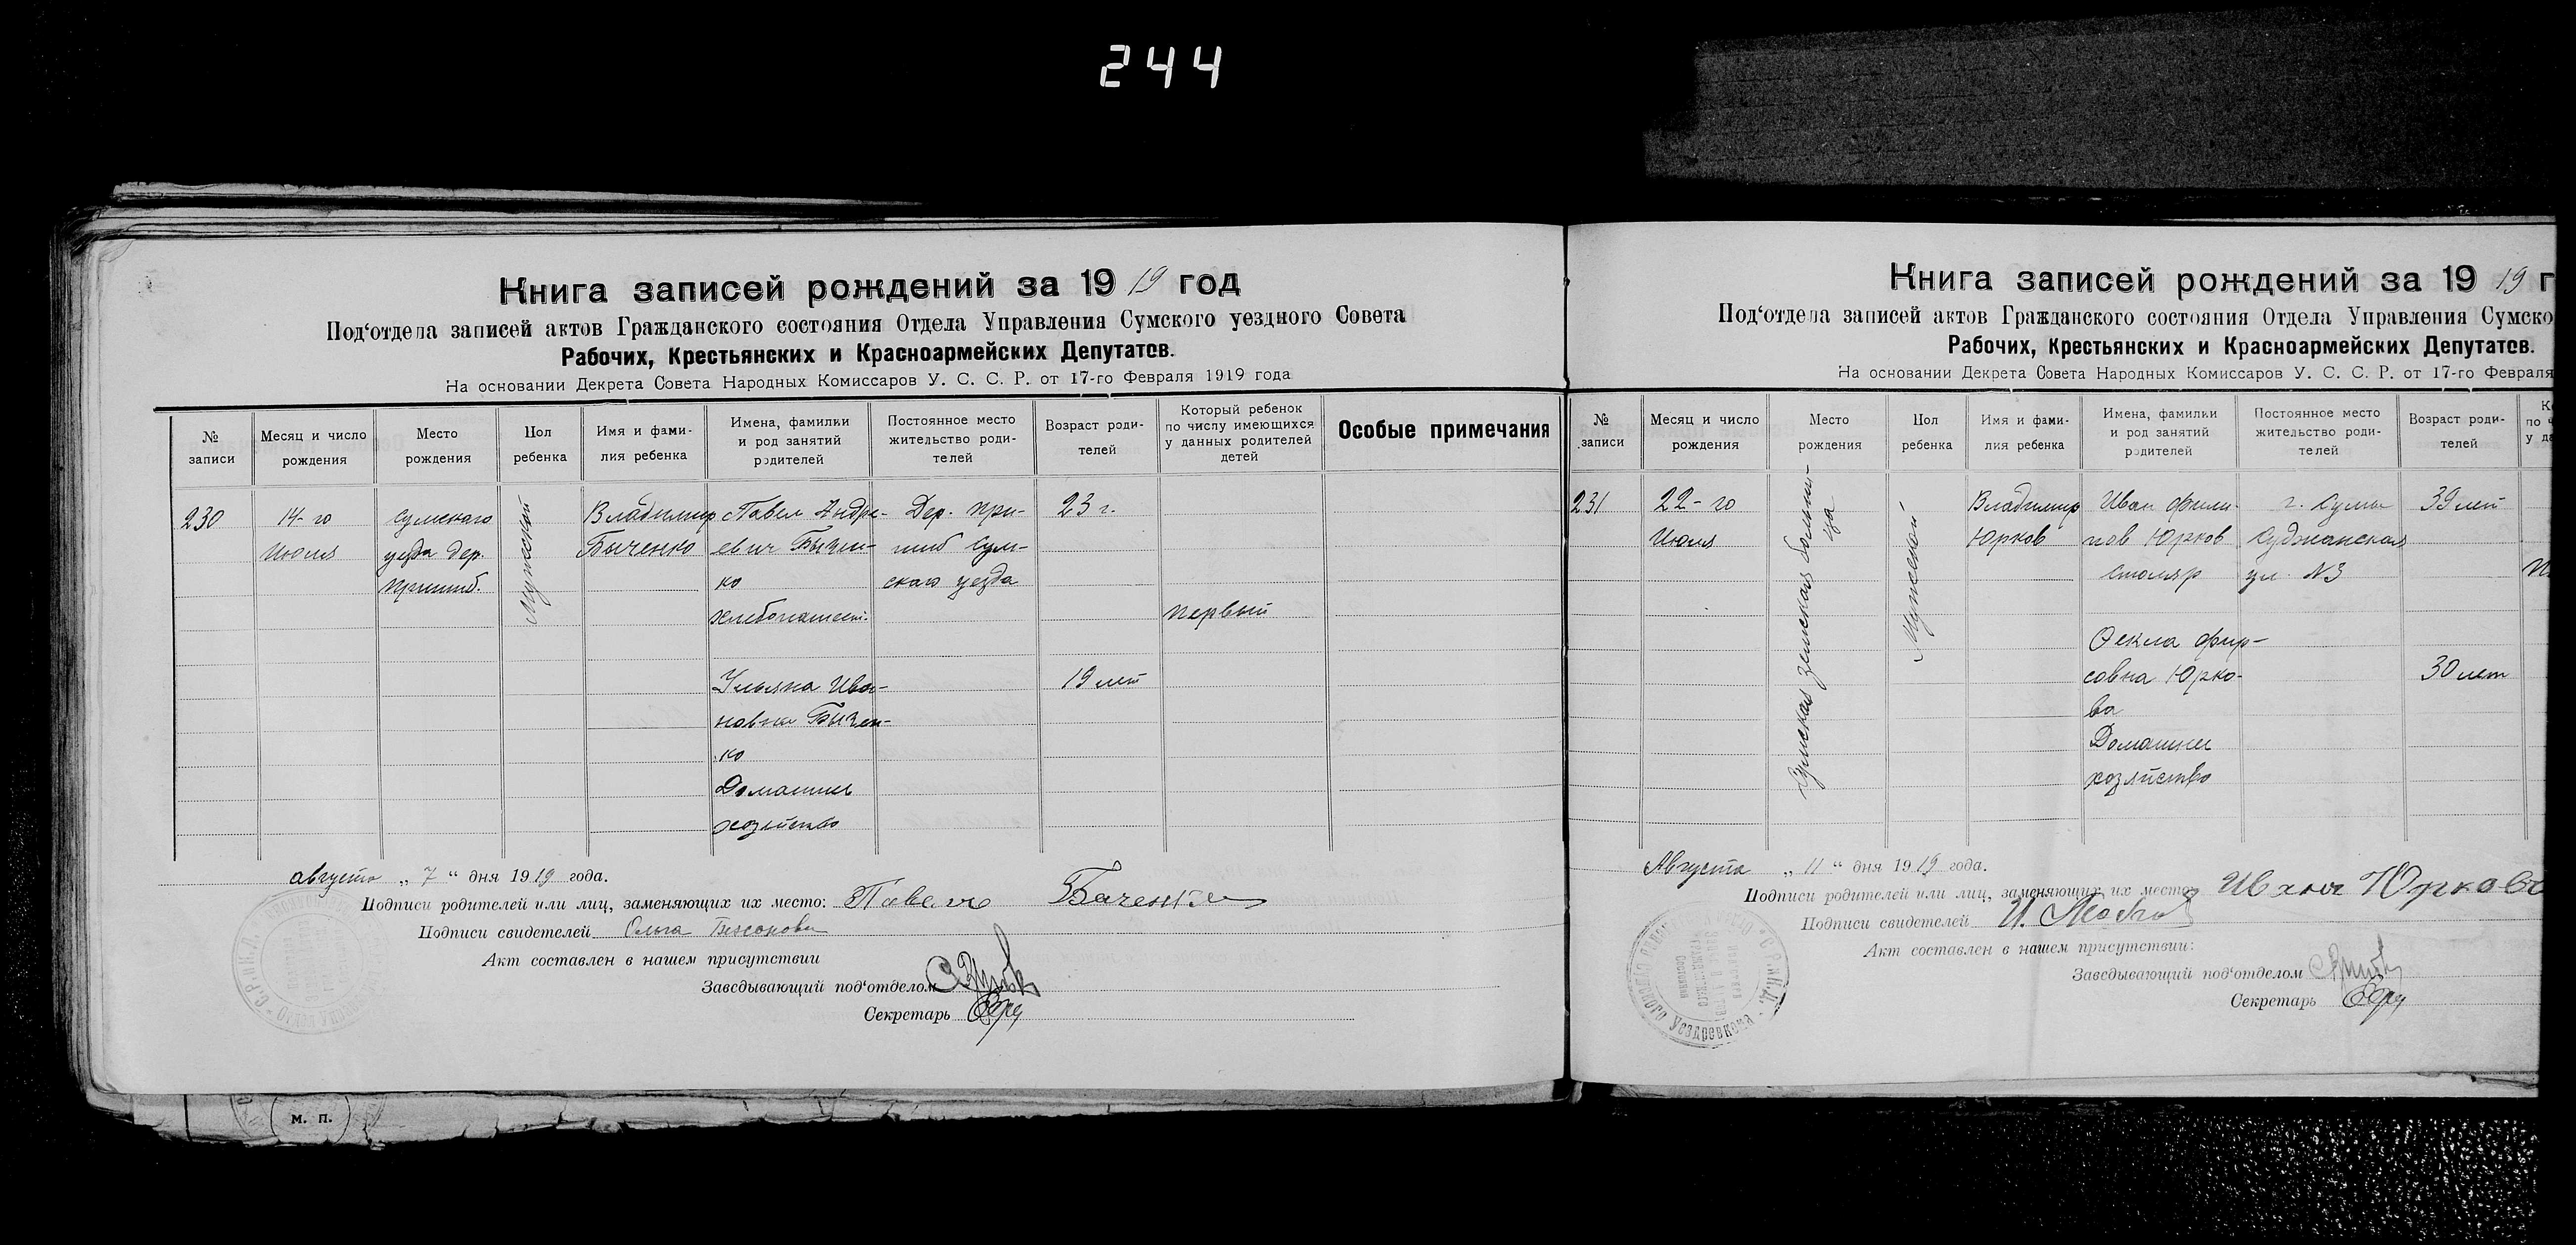 244
Книга записей рождений за 1919 год
Под‘отдела записей актов Гражданского состояния Отдела Управления Сумского уездного Совета
Рабочих, Крестьянских и Красноармейских Депутатов.
На основании Декрета Совета Народных Комиссаров У. С. С. Р. от 17-го Февраля 1919 года
№ записи
Месяц и число рождения
Место рождения
Пол ребенка
Имя и фами-
лия ребенка
Имена, фамилки
и род занятий
родителей
Постоянное место
жительство роди-
телей
Возраст роди-
телей
Который ребенок
по числу имеющихся
у данных родителей
детей
Особые примечания
230
14-го
Июля
Сумскаго
уезда дер.
Мужской
Владимир
Быченко
Павел Андре-
евич Бычен-
ко
хлебопашест.
Ульяна Ива-
новна Бычен-
ко
Домашнее
хозяйство
Дер. При-
шиб Сум-
скаго уезда
23 г.
19 лет
первый
августа „ 7 “ дня 1919 года.
Подписи родителей или лиц, заменяющих их место: Павел
Подписи свидетелей Ольга
Акт составлен в нашем присутствии
Заведывающий под‘отделом
Секретарь
м. п.
Книга записей рождений за 1919 г
Под‘отдела записей актов Гражданского состояния Отдела Управления Сумско
Рабочих, Крестьянских и Красноармейских Депутатов.
На основании Декрета Совета Народных Комиссаров У. С. С. Р. от 17-го Февраля
№ записи
Месяц и число рождения
Место рождения
Пол ребенка
Имя и фами-
лия ребенка
Имена, фамилки
и род занятий
родителей
Постоянное место
жительство роди-
телей
Возраст роди-
телей
231
22-го
Июля
Сумская земская больни-
ца
Мужской
Владимир
Юрков
Иван Фили-
пов Юрков
столяр
Фекла Фир-
совна Юрко-
ва
Домашнее
хозяйство
г. Сумы
Суджанская
ул. N3
39 лет
30 лет
Августа „ 11 “ дня 1919 года.
Подписи родителей или лиц, заменяющих их место: Иван
Подписи свидетелей
Акт составлен в нашем присутствии:
Заведывающий под‘отделом
Секретарь